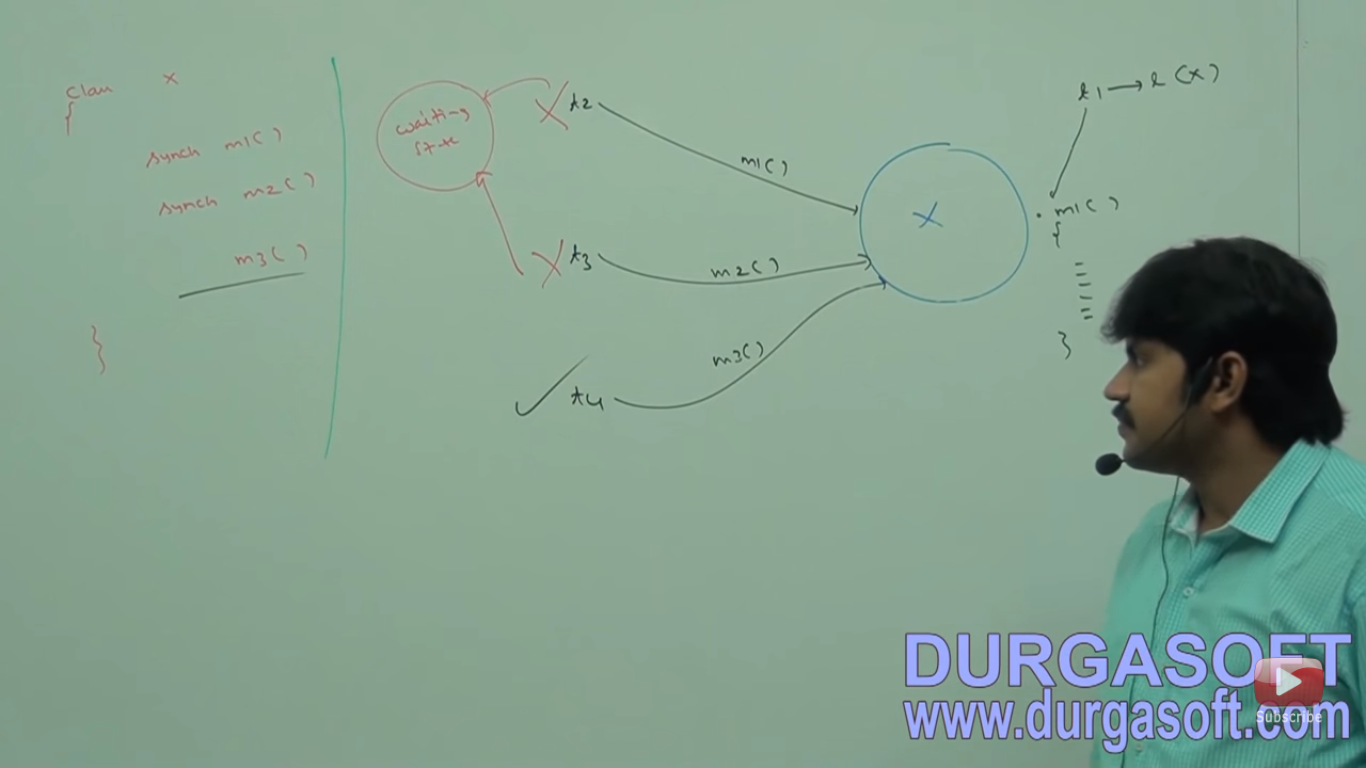 Class X
{
synch m1()
synch m2()
m3()
}
waiting
state
t2
m1()
t3
m2()
t4
m3()
X
t1 → l(X)
. m1()
{
}
DURGASOFT
www.durgasoft.com
Subscribe